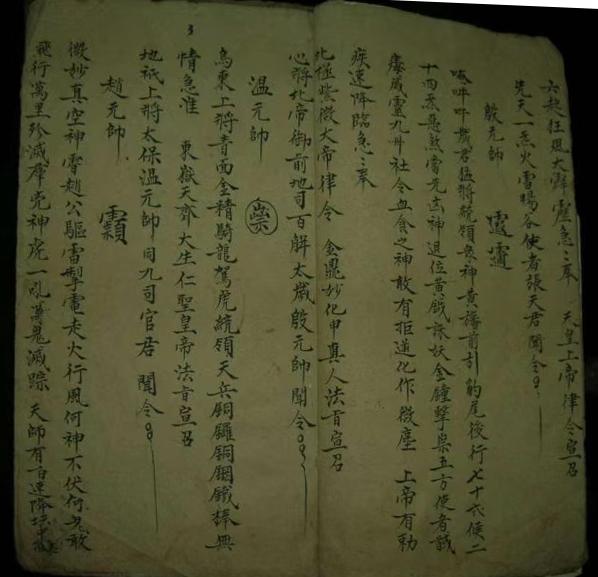 六趣狂風大霹靂急々奉 天皇上帝律令宣召
先天一炁火雷暘谷使者張天君聞令
殷元帥
哞吽吽歲君猛將統領眾神黃旛前引豹尾後行七十六侯二
十四炁惡煞當先凶神退位黃鉞誅妖金鐘擊祟五方使者
歲威靈九州社令血食之神敢有拒逆化作微塵 上帝有勅
疾速降臨急々奉
北極紫微大帝律令 金鼎妙化申真人法旨宣召
心將北帝御前地司百解太歲殷元帥聞令
溫元帥
烏東上將青面金精騎龍駕虎統領天兵銅鑼銅鍘鐵棒無
情急准 東嶽天齊大生仁聖皇帝法旨宣召
地祇上將太保溫元帥同九司官君聞令
趙元帥
微妙真空神霄趙公驅雷掣電走火行風何神不伏何鬼敢
飛行萬里殄滅群兇神虎一吼萬鬼滅踪 天師有旨速降壇